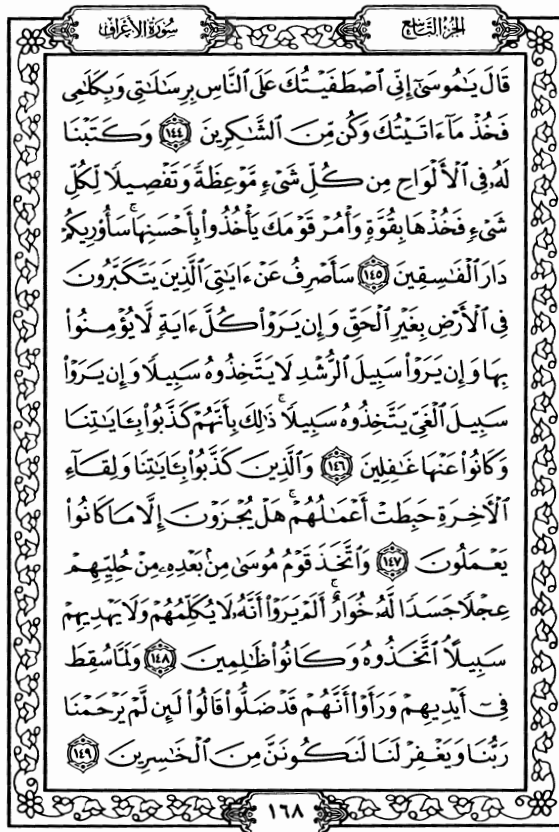 سُورَةُ الأَعْرَافِ
الجُزْءُ التَّاسِعُ
قَالَ يَٰمُوسَىٰٓ إِنِّى ٱصْطَفَيْتُكَ عَلَى ٱلنَّاسِ بِرِسَٰلَٰتِى وَبِكَلَٰمِى
فَخُذْ مَآ ءَاتَيْتُكَ وَكُن مِّنَ ٱلشَّٰكِرِينَ ١٤٤ وَكَتَبْنَا
لَهُۥ فِى ٱلْأَلْوَاحِ مِن كُلِّ شَىْءٍ مَّوْعِظَةً وَتَفْصِيلًا لِّكُلِّ
شَىْءٍ فَخُذْهَا بِقُوَّةٍ وَأْمُرْ قَوْمَكَ يَأْخُذُوا۟ بِأَحْسَنِهَا ۚ سَأُو۟رِيكُمْ
دَارَ ٱلْفَٰسِقِينَ ١٤٥ سَأَصْرِفُ عَنْ ءَايَٰتِىَ ٱلَّذِينَ يَتَكَبَّرُونَ
فِى ٱلْأَرْضِ بِغَيْرِ ٱلْحَقِّ وَإِن يَرَوْا۟ كُلَّ ءَايَةٍ لَّا يُؤْمِنُوا۟
بِهَا وَإِن يَرَوْا۟ سَبِيلَ ٱلرُّشْدِ لَا يَتَّخِذُوهُ سَبِيلًا وَإِن يَرَوْا۟
سَبِيلَ ٱلْغَىِّ يَتَّخِذُوهُ سَبِيلًا ۚ ذَٰلِكَ بِأَنَّهُمْ كَذَّبُوا۟ بِـَٔايَٰتِنَا
وَكَانُوا۟ عَنْهَا غَٰفِلِينَ ١٤٦ وَٱلَّذِينَ كَذَّبُوا۟ بِـَٔايَٰتِنَا وَلِقَآءِ
ٱلْأَخِرَةِ حَبِطَتْ أَعْمَٰلُهُمْ ۚ هَلْ يُجْزَوْنَ إِلَّا مَا كَانُوا۟
يَعْمَلُونَ ١٤٧ وَٱتَّخَذَ قَوْمُ مُوسَىٰ مِنۢ بَعْدِهِۦ مِنْ حُلِيِّهِمْ
عِجْلًا جَسَدًا لَّهُۥ خُوَارٌ ۚ أَلَمْ يَرَوْا۟ أَنَّهُۥ لَا يُكَلِّمُهُمْ وَلَا يَهْدِيهِمْ
سَبِيلًا ۘ ٱتَّخَذُوهُ وَكَانُوا۟ ظَٰلِمِينَ ١٤٨ وَلَمَّا سُقِطَ
فِىٓ أَيْدِيهِمْ وَرَأَوْا۟ أَنَّهُمْ قَدْ ضَلُّوا۟ قَالُوا۟ لَئِن لَّمْ يَرْحَمْنَا
رَبُّنَا وَيَغْفِرْ لَنَا لَنَكُونَنَّ مِنَ ٱلْخَٰسِرِينَ ١٤٩
١٦٨